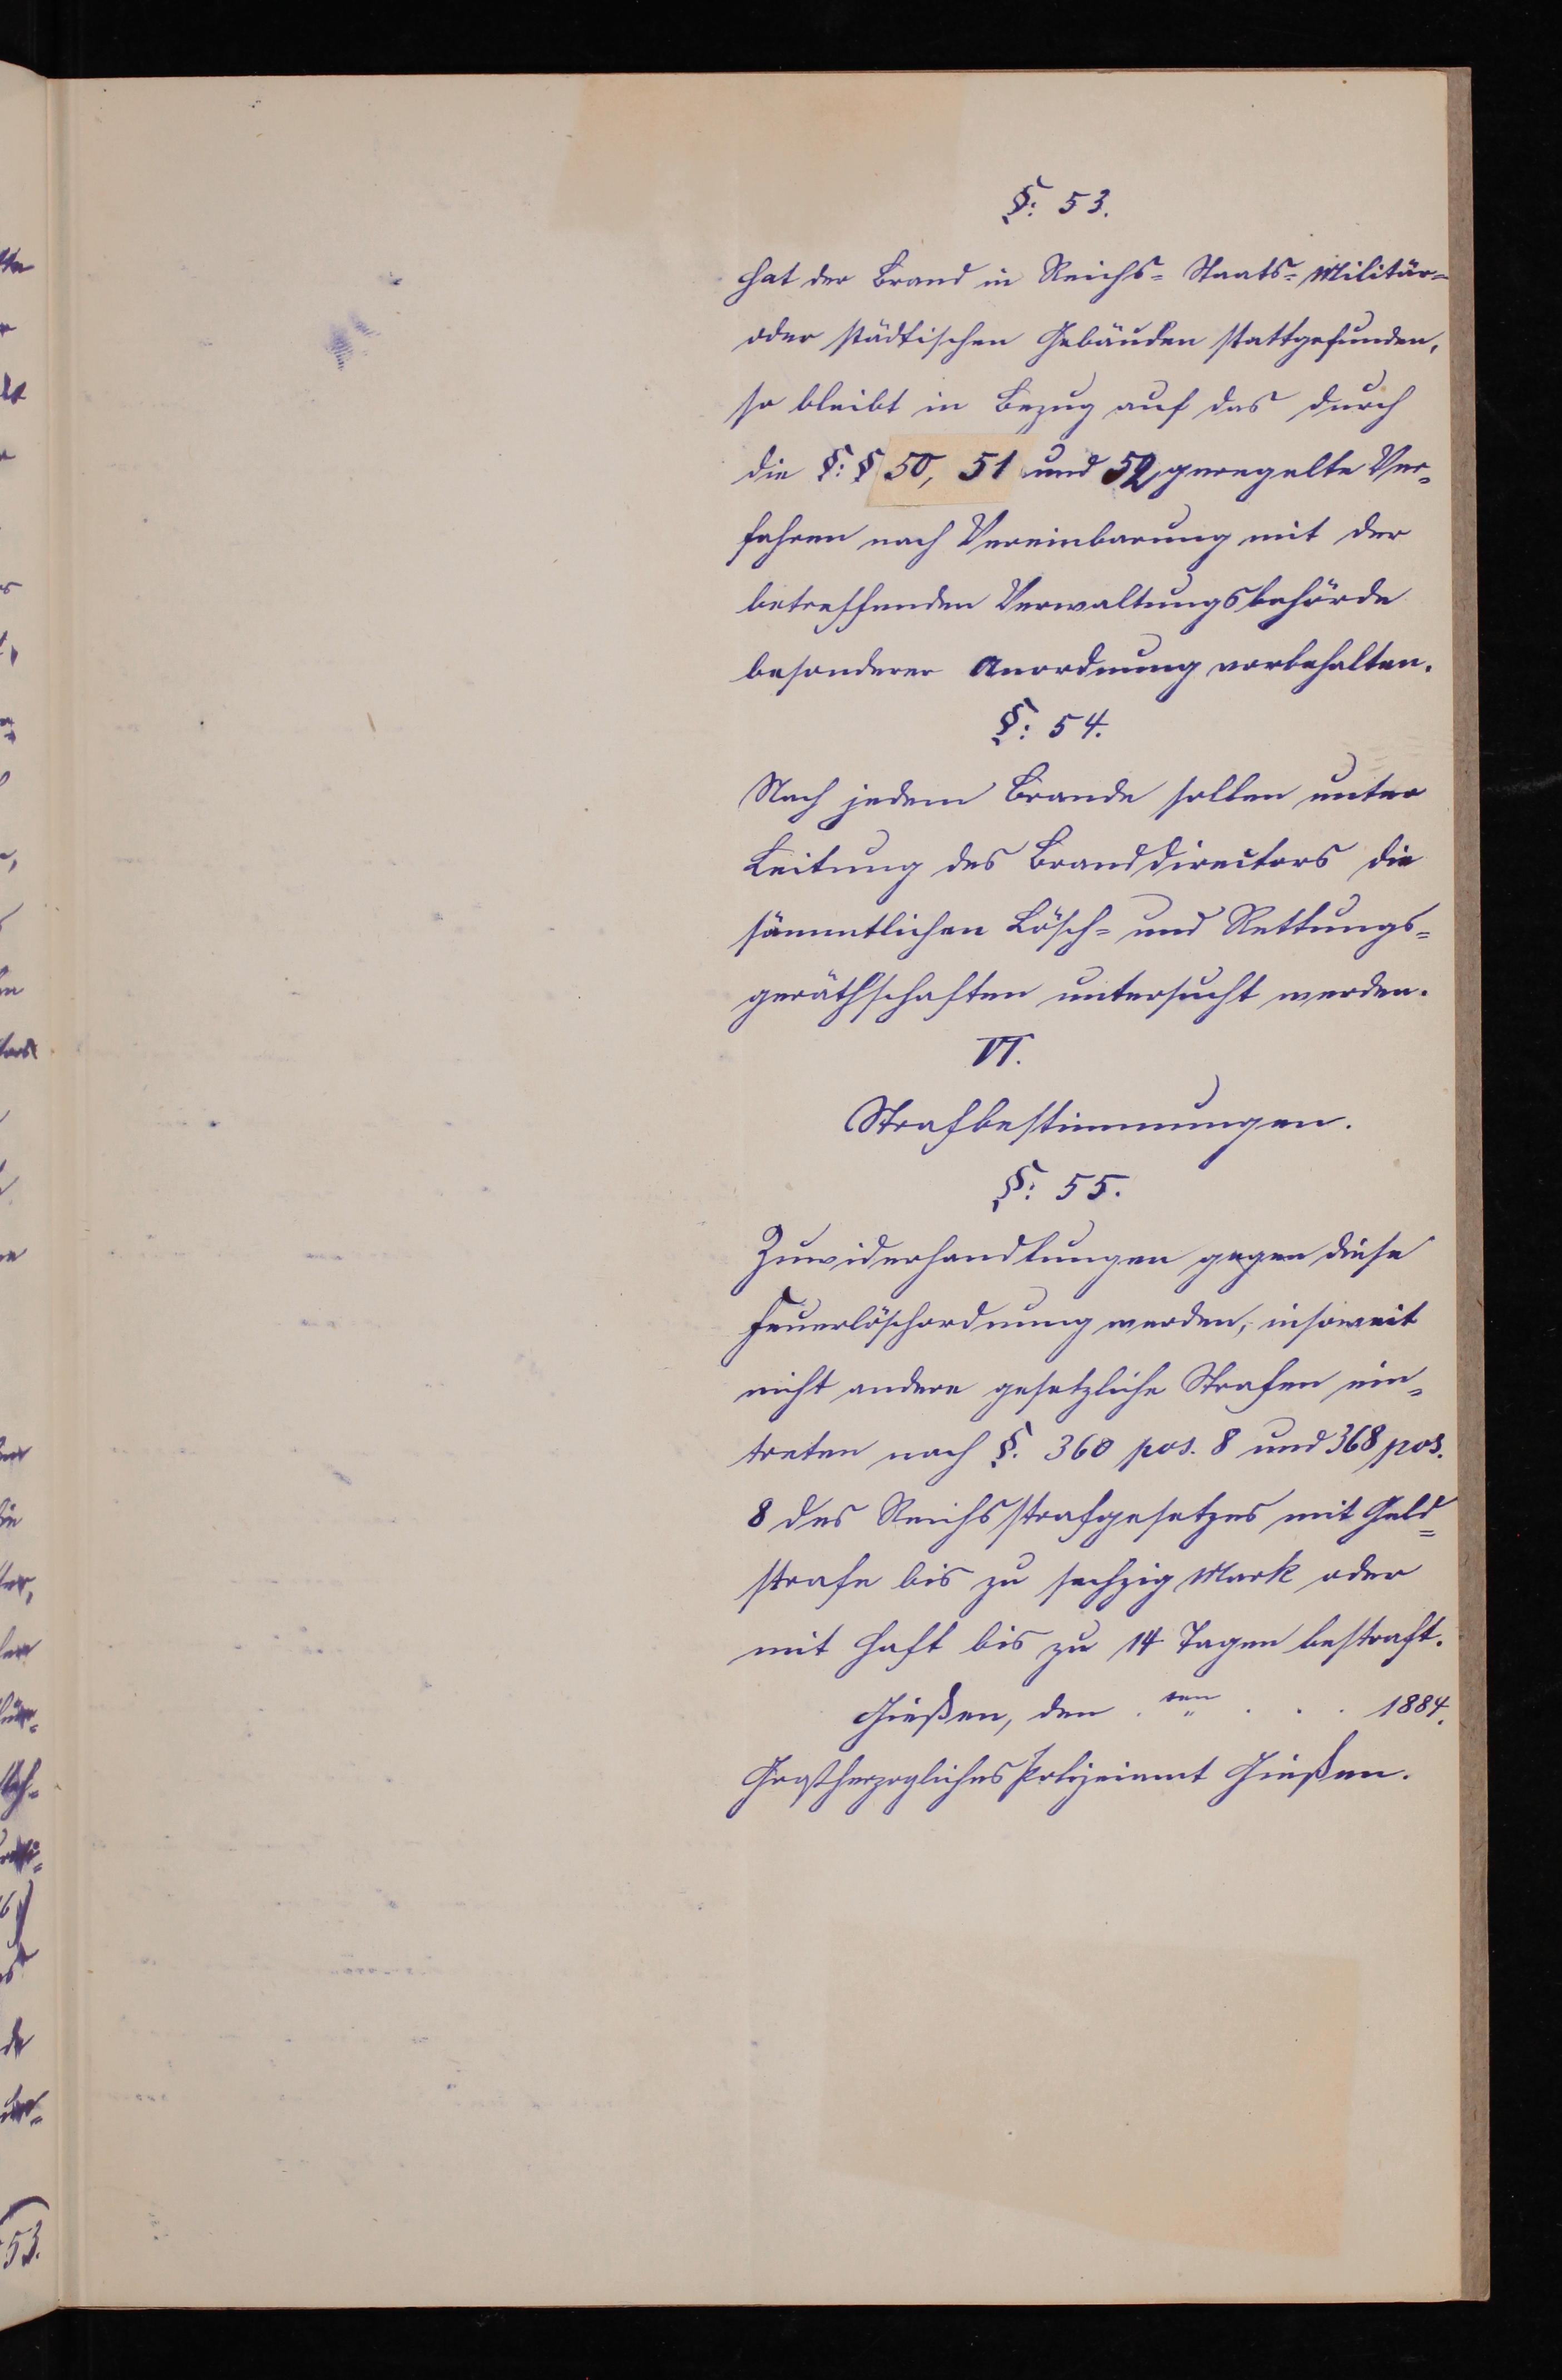 §: 53.
Hat der Brand in Reichs- Staats- Militär-
oder städtischen Gebäuden stattgefunden,
so bleibt in Bezug auf das durch
die §: § 50, 51 und 52 geregelte Ver-
fahren nach Vereinbarung mit der
betreffenden Verwaltungsbehörde
besonderer Anordnung vorbehalten.
§: 54.
Nach jedem Brande sollen unter
Leitung des Branddirectors die
sämmtlichen Lösch- und Rettungs-
geräthschaften untersucht werden.
VI.
Strafbestimmungen.
§: 55.
Zuwiderhandlungen gegen diese
Feuerlöschordnung werden, insoweit
nicht andere gesetzliche Strafen ein-
treten nach §. 360 pos. 8 und 368 pos.
8 des Reichsstrafgesetzes mit Geld-
strafe bis zu sechzig Mark oder
mit Haft bis zu 14 Tagen bestraft.
Gießen, den . ten . . . 1884.
Großherzogliches Polizeiamt Gießen.
53.